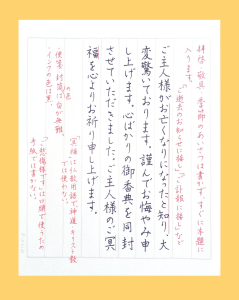 拝啓 敬具 季節のあいさつは書かず、すぐに本題に
入ります。
「ご逝去のお知らせに接し」「ご訃報に接し」など
ご主人様がお亡くなりになったと知り、大
変驚いております。謹んでお悔やみ申
し上げます。心ばかりの御香典を同封
させていただきました。ご主人様のご冥
福を心よりお祈り申し上げます。
「冥福」は仏教用語で神道・キリスト教
では使わない。
の色
便箋、封筒は白が無難。
・インクの色は黒。
「ご愁傷様です」は口頭で使うため
手紙では書かない。